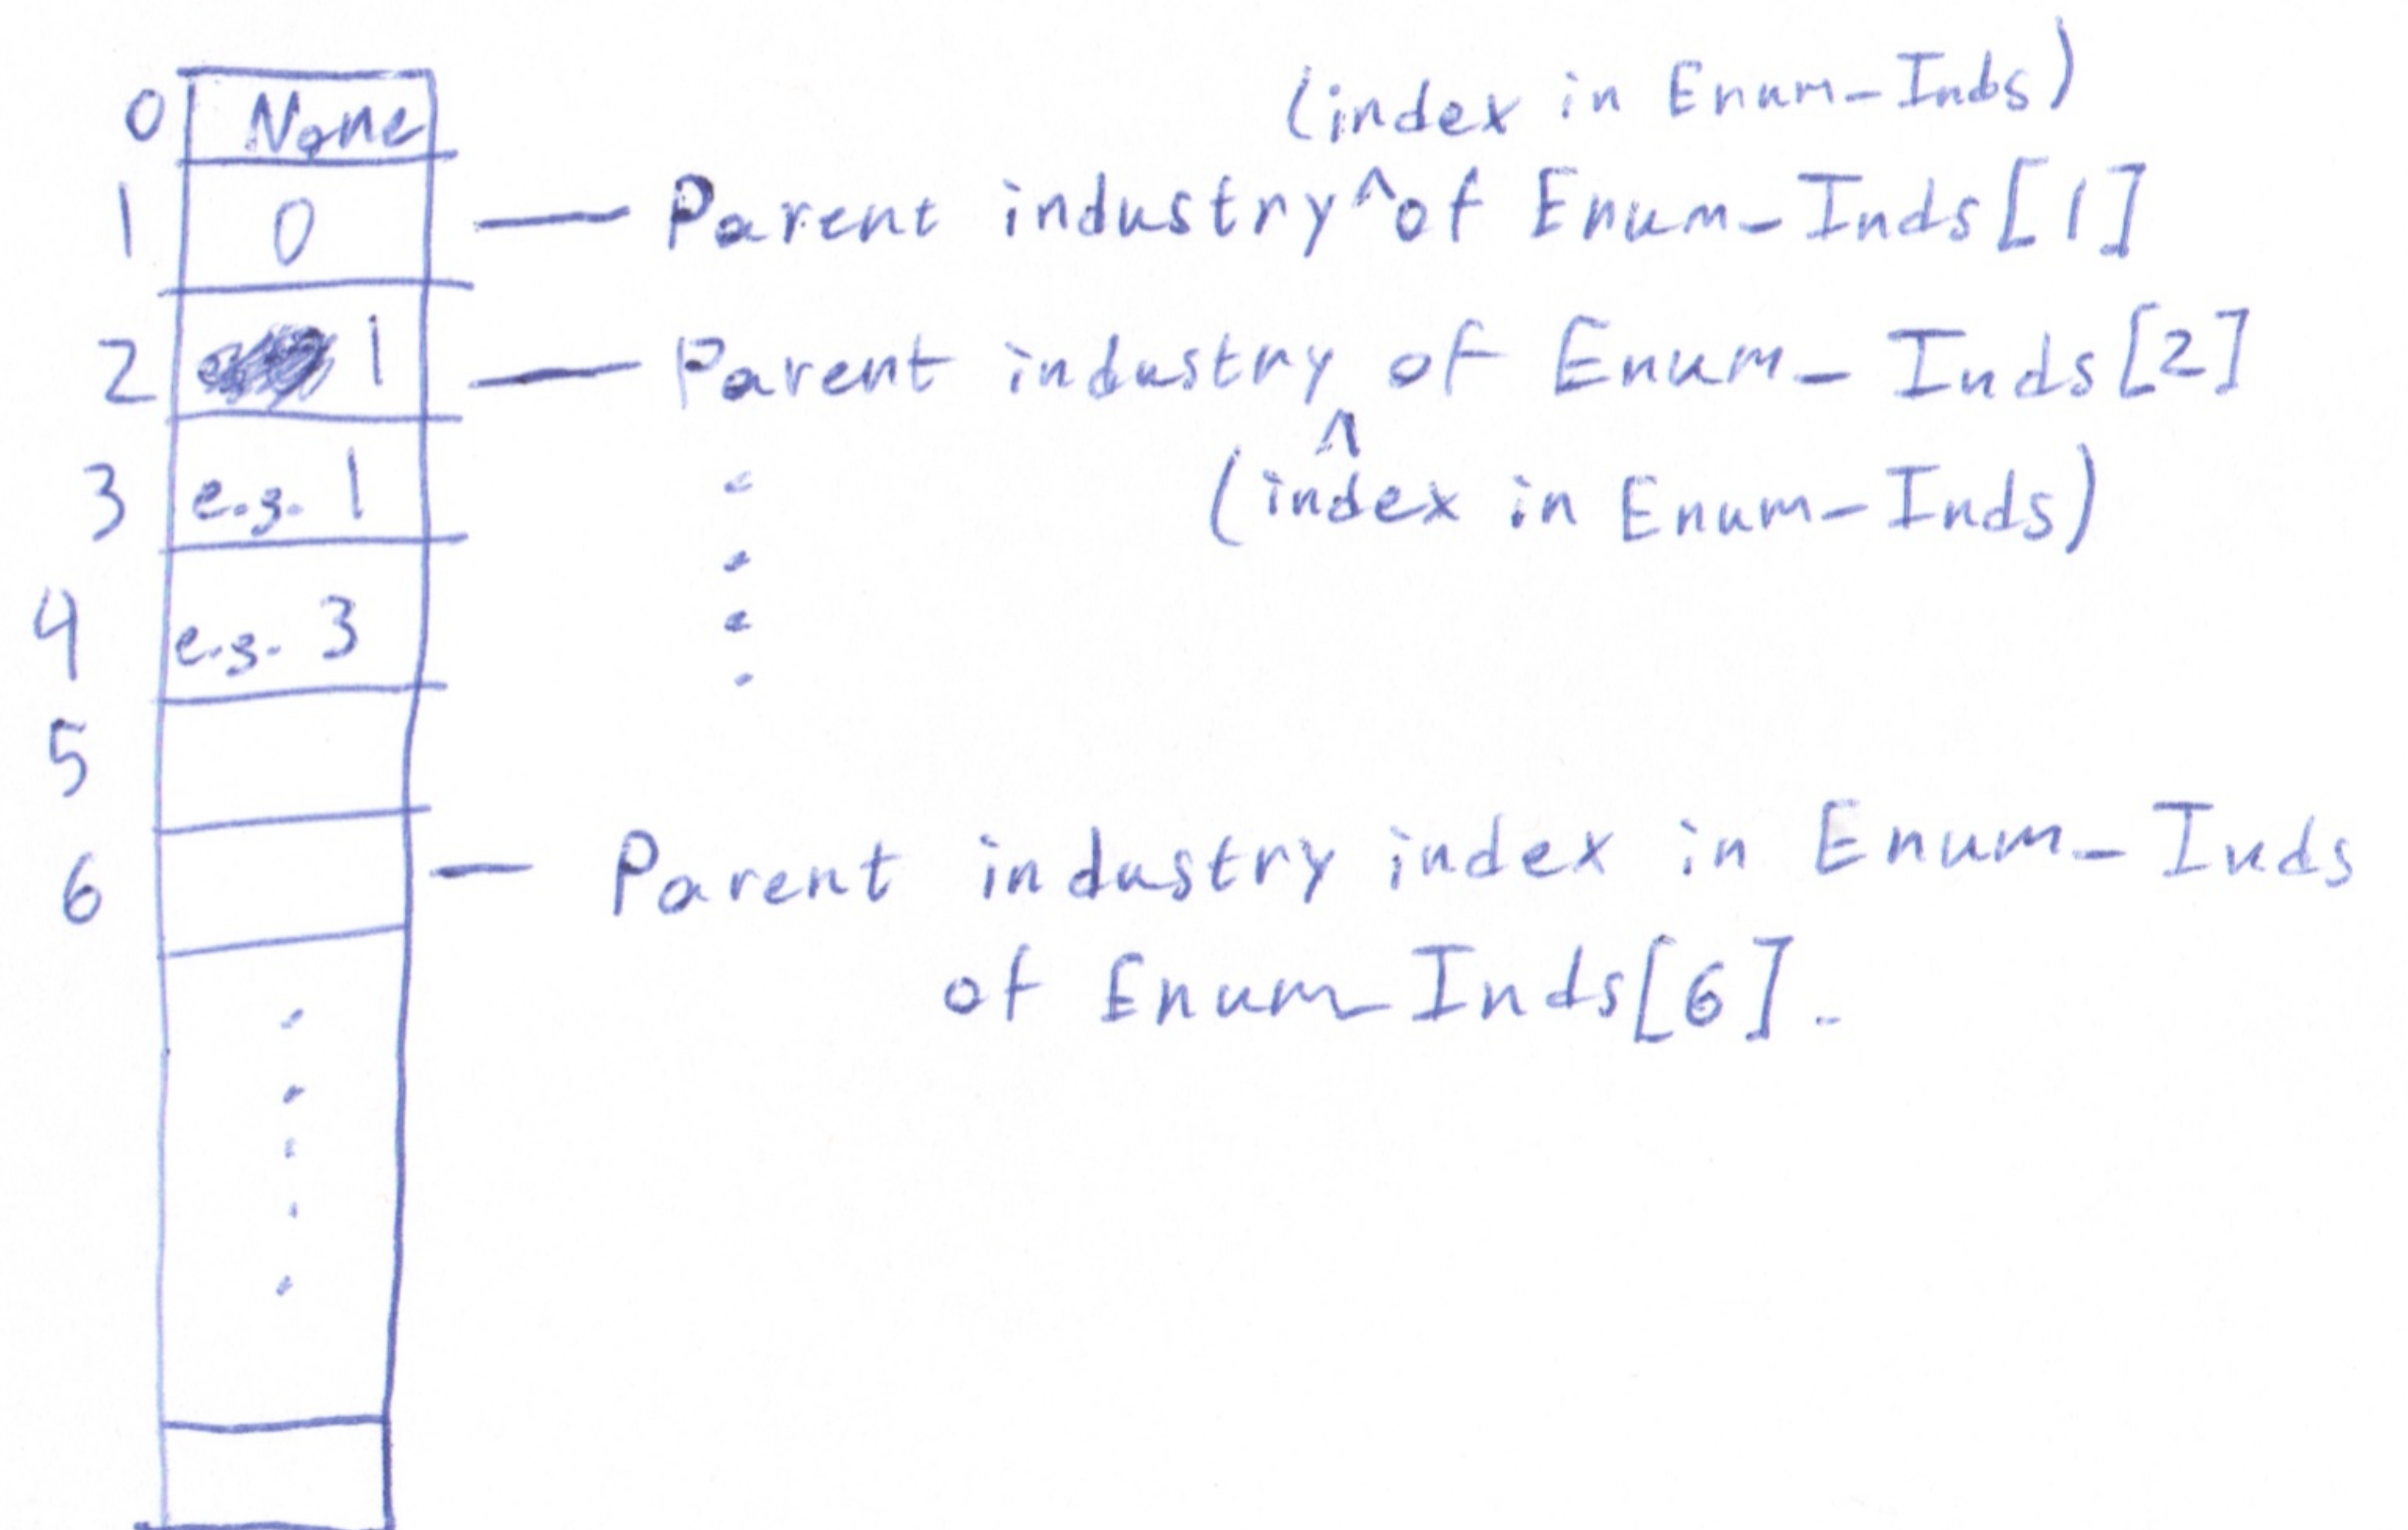 (index in Enum-Inds)
0 None
1 0 — Parent industry ^ of Enum-Inds[1]
2 1 — Parent industry of Enum-Inds[2]
^
3 e.g. 1 (index in Enum-Inds)
4 e.g. 3
5
6 — Parent industry index in Enum-Inds
of Enum-Inds[6].